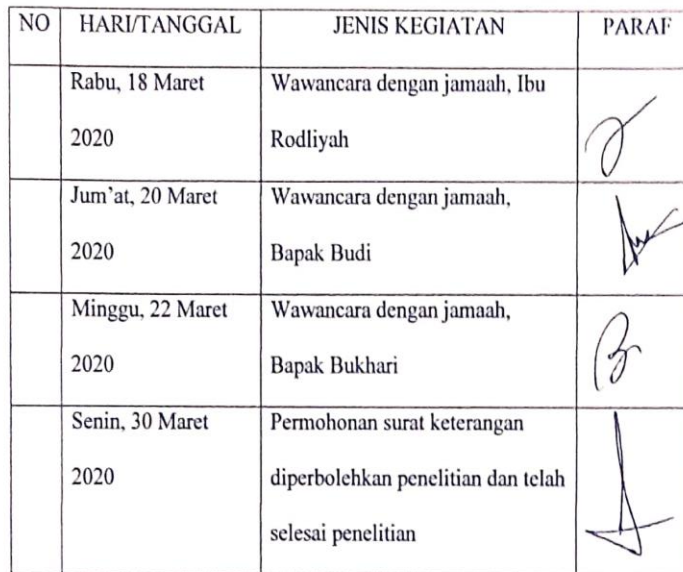 NO HARI/TANGGAL JENIS KEGIATAN PARAF
Rabu, 18 Maret Wawancara dengan jamaah, Ibu
2020 Rodliyah
Jum'at, 20 Maret Wawancara dengan jamaah,
2020 Bapak Budi
Minggu, 22 Maret Wawancara dengan jamaah,
2020 Bapak Bukhari
Senin, 30 Maret Permohonan surat keterangan
2020 diperbolehkan penelitian dan telah
selesai penelitian